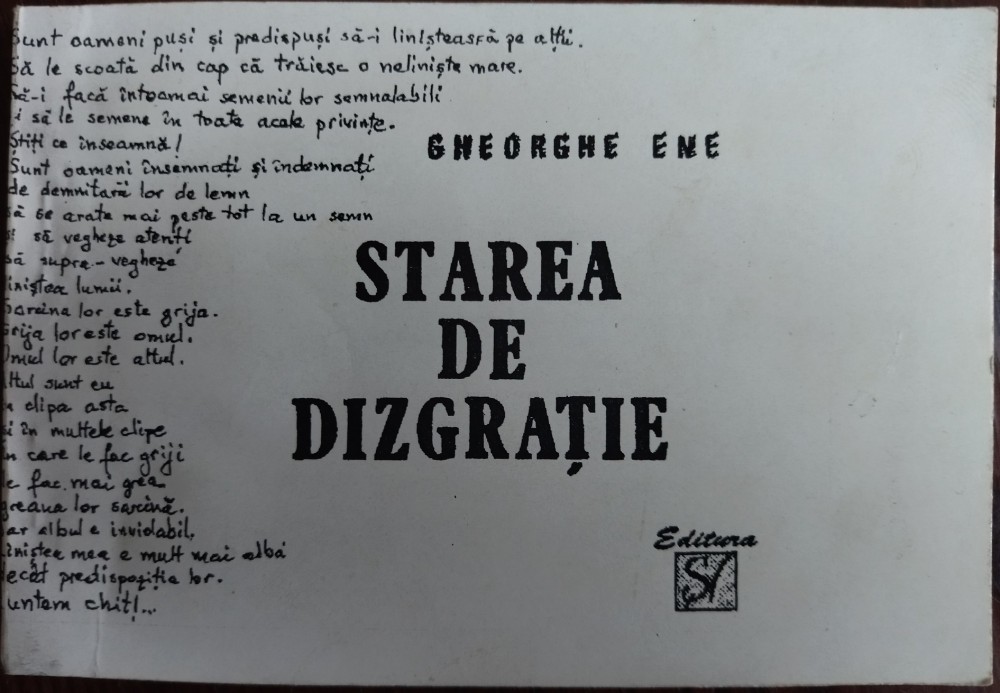 Sunt oameni puși și predispuși să-i liniștească pe alții.
Să le scoată din cap că trăiesc o neliniște mare.
Să-i facă întocmai semenii lor semnalabili
și să le semene în toate acele privințe.
Știți ce înseamnă!
Sunt oameni însemnați și îndemnați
de demnitarii lor de lemn
să se arate mai peste tot la un semn
și să vegheze atenți
să supra-vegheze
liniștea lumii.
Sarcina lor este grija.
Grija lor este omul.
Omul lor este altul.
Altul sunt eu
în clipa asta
și în multele clipe
în care le fac griji
le fac mai grea
greaua lor sarcină.
Dar albul e inviolabil,
liniștea mea e mult mai albă
decât predispoziția lor.
Suntem chit!...
GHEORGHE ENE
STAREA
DE
DIZGRAȚIE
Editura